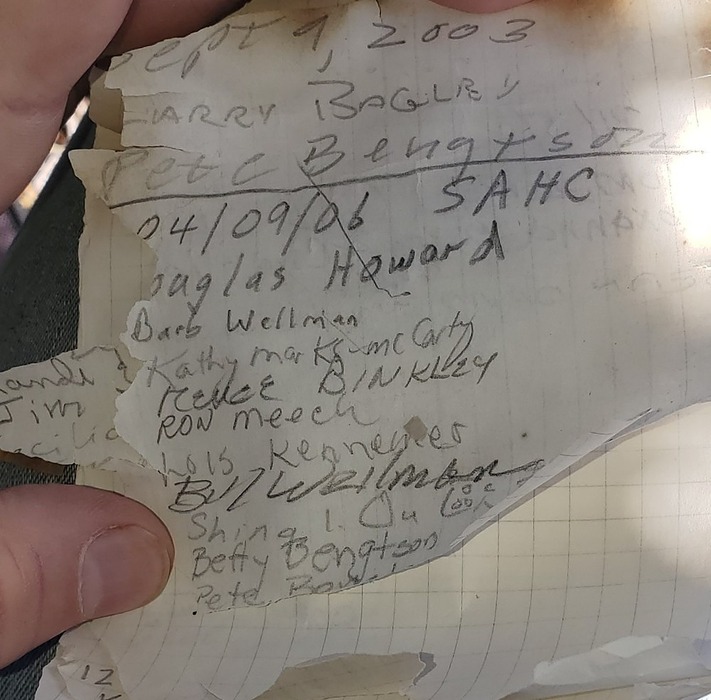 ept 9, 2003
LARRY BAGLEY
Pete Bengtson
04/09/06 SAHC
ouglas Howard
Barb Wellman
Kathy Marks-McCarty
BINKLEY
RON Meech
Lois Kennemer
Bill Wellman
Shing I. Ou
Betty Bengtson
Pete
andi
Jim
cilia
12